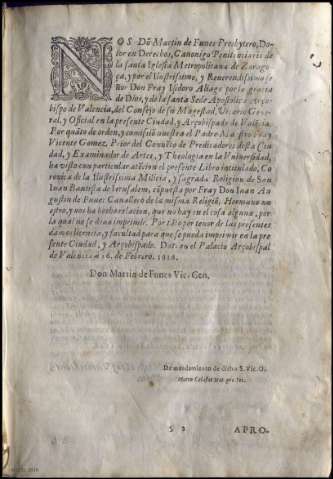 NOS Dō Martin de Funes Presbytero, Do-
tor en Derechos, Canonigo Penitēciario de
la santa Iglesia Metropolitana de Zarago-
ça, y por el Ilustrissimo, y Reverendissimo se
ñor Don Fray Isidoro Aliaga por la gracia
de Dios, y de la santa Sede Apostolica Arço-
bispo de Valencia, del Consejo de su Magestad, Vicario Gene-
ral, y Oficial en la presente Ciudad, y Arçobispado de Valencia.
Por quāto de orden, y comissiō nuestra el Padre Maestro Fray
Vicente Gomez, Prior del Convēto de Predicadores desta Ciu
dad, y Examinador de Artes, y Theologia en la Universidad,
ha visto con particular atēcion el presente Libro intitulado, Co
ronica de la Ilustrissima Milicia, y sagrada Religion de San
Iuan Bautista de Ierusalem, cōpuesta por Fray Don Iuan Au
gustin de Funes Cavallero de la misma Religiō, Hermano nu
estro, y nos ha hecho relacion, que no hay en el cosa alguna, por
la qual no se deva imprimir. Por tāto por tenor de las presentes
damos licencia, y facultad para que se pueda imprimir en la pre
sente Ciudad, y Arçobispado. Dat. en el Palacio Arçobispal
de Valencia a 16. de Febrero.
Don Martin de Funes Vic. Gen.
De mandamiento de dicho S. Vic. G.
§ 2 APRO-